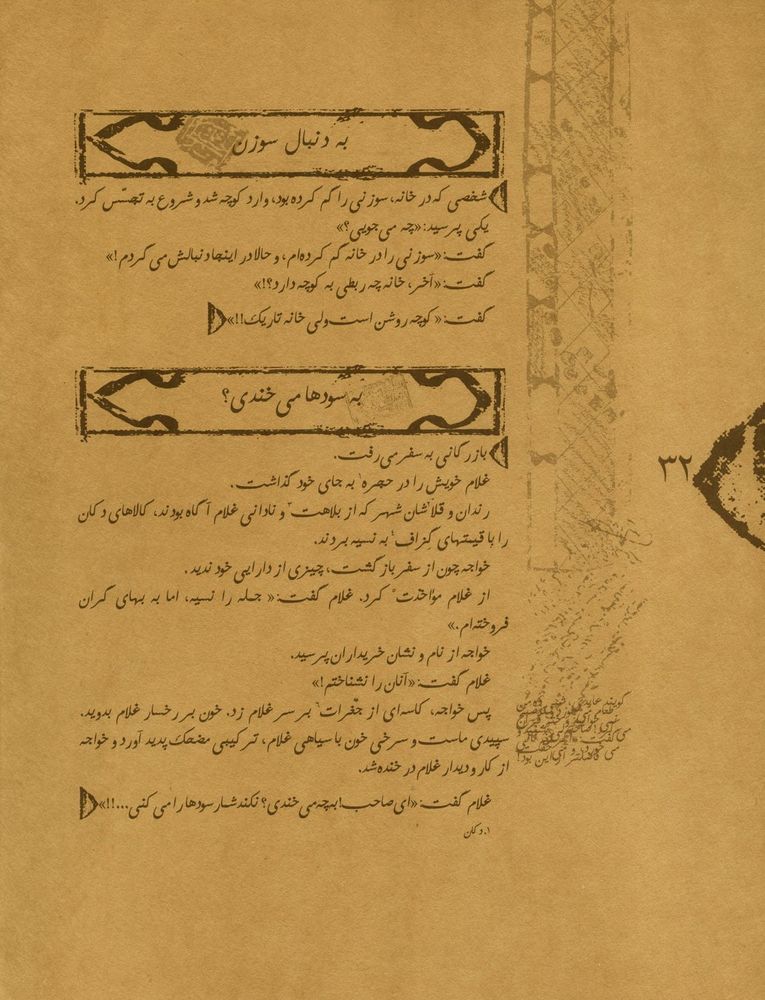 به دنبال سوزن
شخصی که در خانه، سوزنی را گم کرده بود، وارد کوچه شد و شروع به تجسّس کرد.
یکی پرسید: «چه می جویی؟»
گفت: «سوزنی را در خانه گم کرده‌ام، و حالا در اینجا دنبالش می گردم!»
گفت: «آخر، خانه چه ربطی به کوچه دارد؟!»
گفت: «کوچه روشن است ولی خانه تاریک!!»
به سودها می خندی؟
بازرگانی به سفر می رفت.
غلام خویش را در حجره۱ به جای خود گذاشت.
رندان و قلاّشان شهر که از بلاهت و نادانی غلام آگاه بودند، کالاهای دکان
را با قیمتهای گزاف به نسیه بردند.
خواجه چون از سفر باز گشت، چیزی از دارایی خود ندید.
از غلام مؤاخذت کرد. غلام گفت: «جمله را نسیه، اما به بهای گران
فروخته‌ام.»
خواجه از نام و نشان خریداران پرسید.
غلام گفت: «آنان را نشناختم!»
پس خواجه، کاسه‌ای از جغرات بر سر غلام زد. خون بر رخسار غلام بدوید.
سپیدی ماست و سرخی خون با سیاهی غلام، ترکیبی مضحک پدید آورد و خواجه
از کار و دیدار غلام در خنده شد.
غلام گفت: «ای صاحب! به چه می خندی؟ نکند شمار سودها را می کنی...!!»
۱. دکان
۳۲